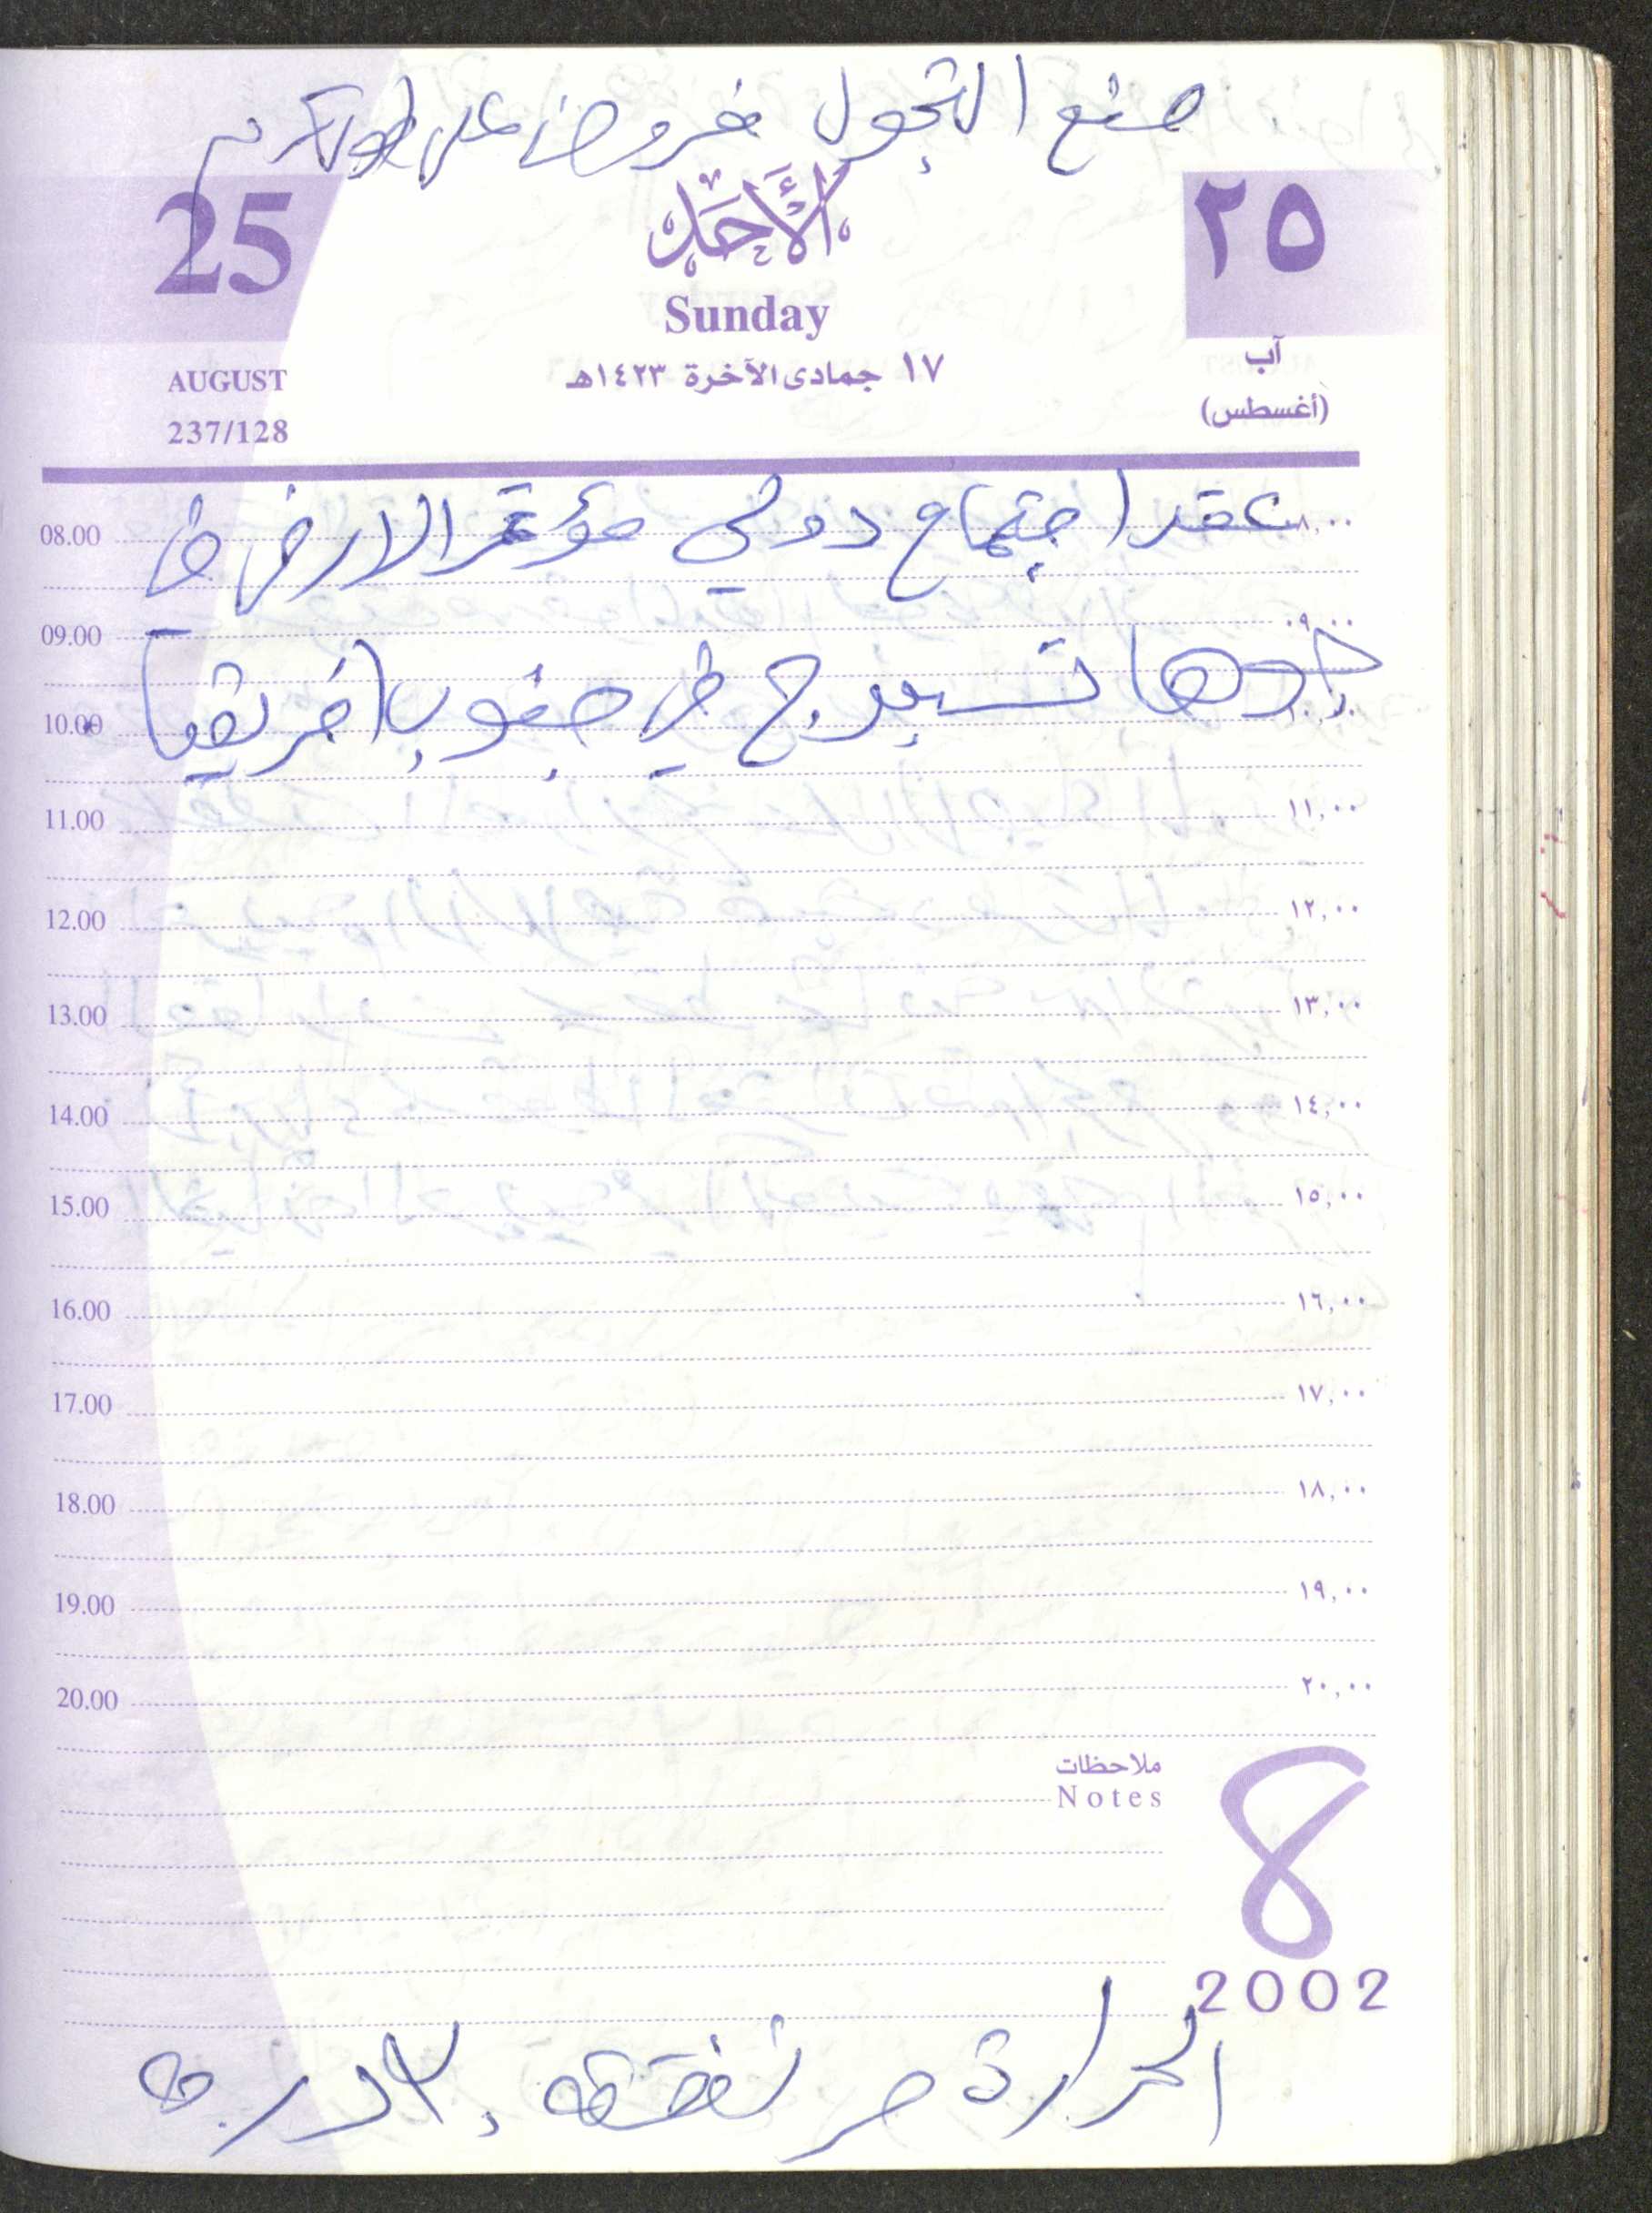 صنع التجول خروض على طولكرم
25
الأَحَد
٢٥
Sunday
آب
AUGUST
١٧ جمادى الآخرة ١٤٢٣هـ
(أغسطس)
237/128
08.00 عقد اجتماع دولي مؤتمر الارض في ٨,٠٠
09.00 ٠٩,٠٠
جوها نسبورج في جنوب افريقيا
10.00 ١٠,٠٠
11.00 ١١,٠٠
12.00 ١٢,٠٠
13.00 ١٣,٠٠
14.00 ١٤,٠٠
15.00 ١٥,٠٠
16.00 ١٦,٠٠
17.00 ١٧,٠٠
18.00 ١٨,٠٠
19.00 ١٩,٠٠
20.00 ٢٠,٠٠
ملاحظات
Notes
8
2002
الحرارة مرتفعة درجة